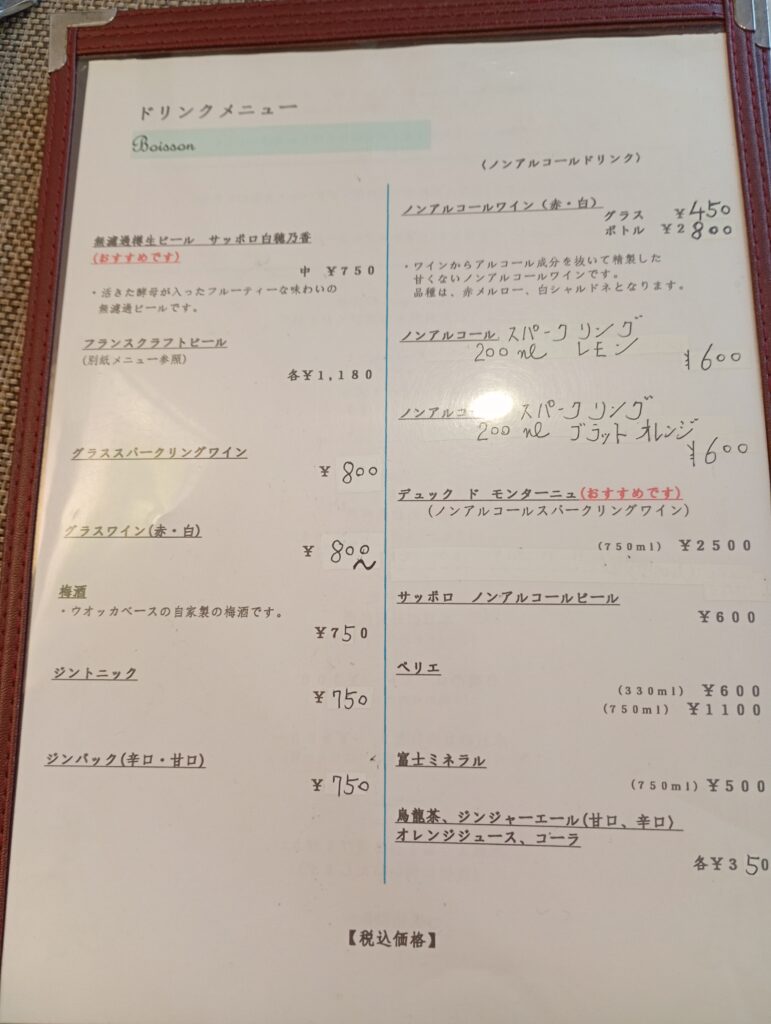 ドリンクメニュー
Boisson
無濾過樽生ビール サッポロ白穂乃香
(おすすめです)
中 ￥750
・活きた酵母が入ったフルーティーな味わいの
無濾過ビールです。
フランスクラフトビール
(別紙メニュー参照)
各￥1,180
グラススパークリングワイン
￥ 800
グラスワイン(赤・白)
￥ 800～
梅酒
・ウオッカベースの自家製の梅酒です。
￥750
ジントニック
￥750
ジンバック(辛口・甘口)
￥750
(ノンアルコールドリンク)
ノンアルコールワイン(赤・白)
グラス ￥450
ボトル ￥2800
・ワインからアルコール成分を抜いて精製した
甘くないノンアルコールワインです。
品種は、赤メルロー、白シャルドネとなります。
ノンアルコール スパークリング
200 ml レモン
￥600
ノンアルコー スパークリング
200 ml ブラットオレンジ
￥600
デュック ド モンターニュ(おすすめです)
(ノンアルコールスパークリングワイン)
(750ml) ￥2500
サッポロ ノンアルコールビール
￥600
ペリエ
(330ml) ￥600
(750ml) ￥1100
富士ミネラル
(750ml) ￥500
烏龍茶、ジンジャーエール(甘口、辛口)
オレンジジュース、コーラ
各￥350
【税込価格】